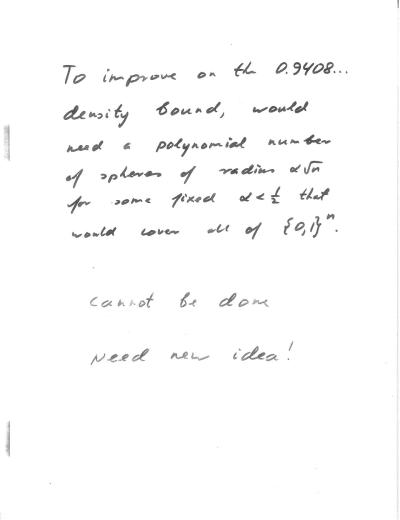 To improve on th 0.9408...
density bound, would
need a polynomial number
of spheres of radius α√n
for some fixed α < 1/2 that
would cover all of {0,1}ⁿ.
cannot be done
Need new idea!